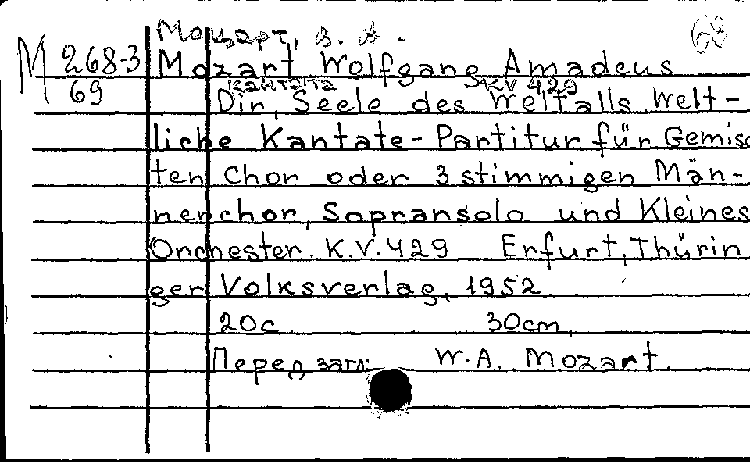 Моцарт, В. А. 68
М 268-3 Mozart Wolfgang Amadeus
69 кантата KV 429
Dir, Seele des Weltalls. Welt-
liche Kantate-Partitur für Gemisc
ten Chor oder 3 stimmigen Män-
nerchor, Sopransolo und Kleines
Orchester. K.V.429 Erfurt, Thürin
ger Volksverlag, 1952
20с 30cm,
Перед загл: W.A. Mozart.